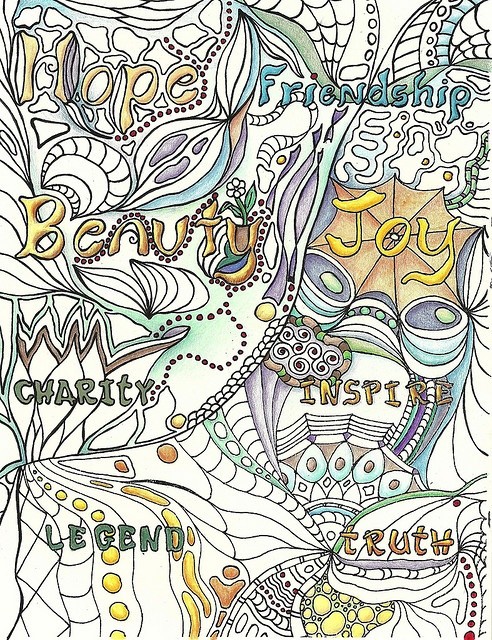 Hope
Friendship
Beauty
Joy
CHARITY
INSPIRE
LEGEND
TRUTH